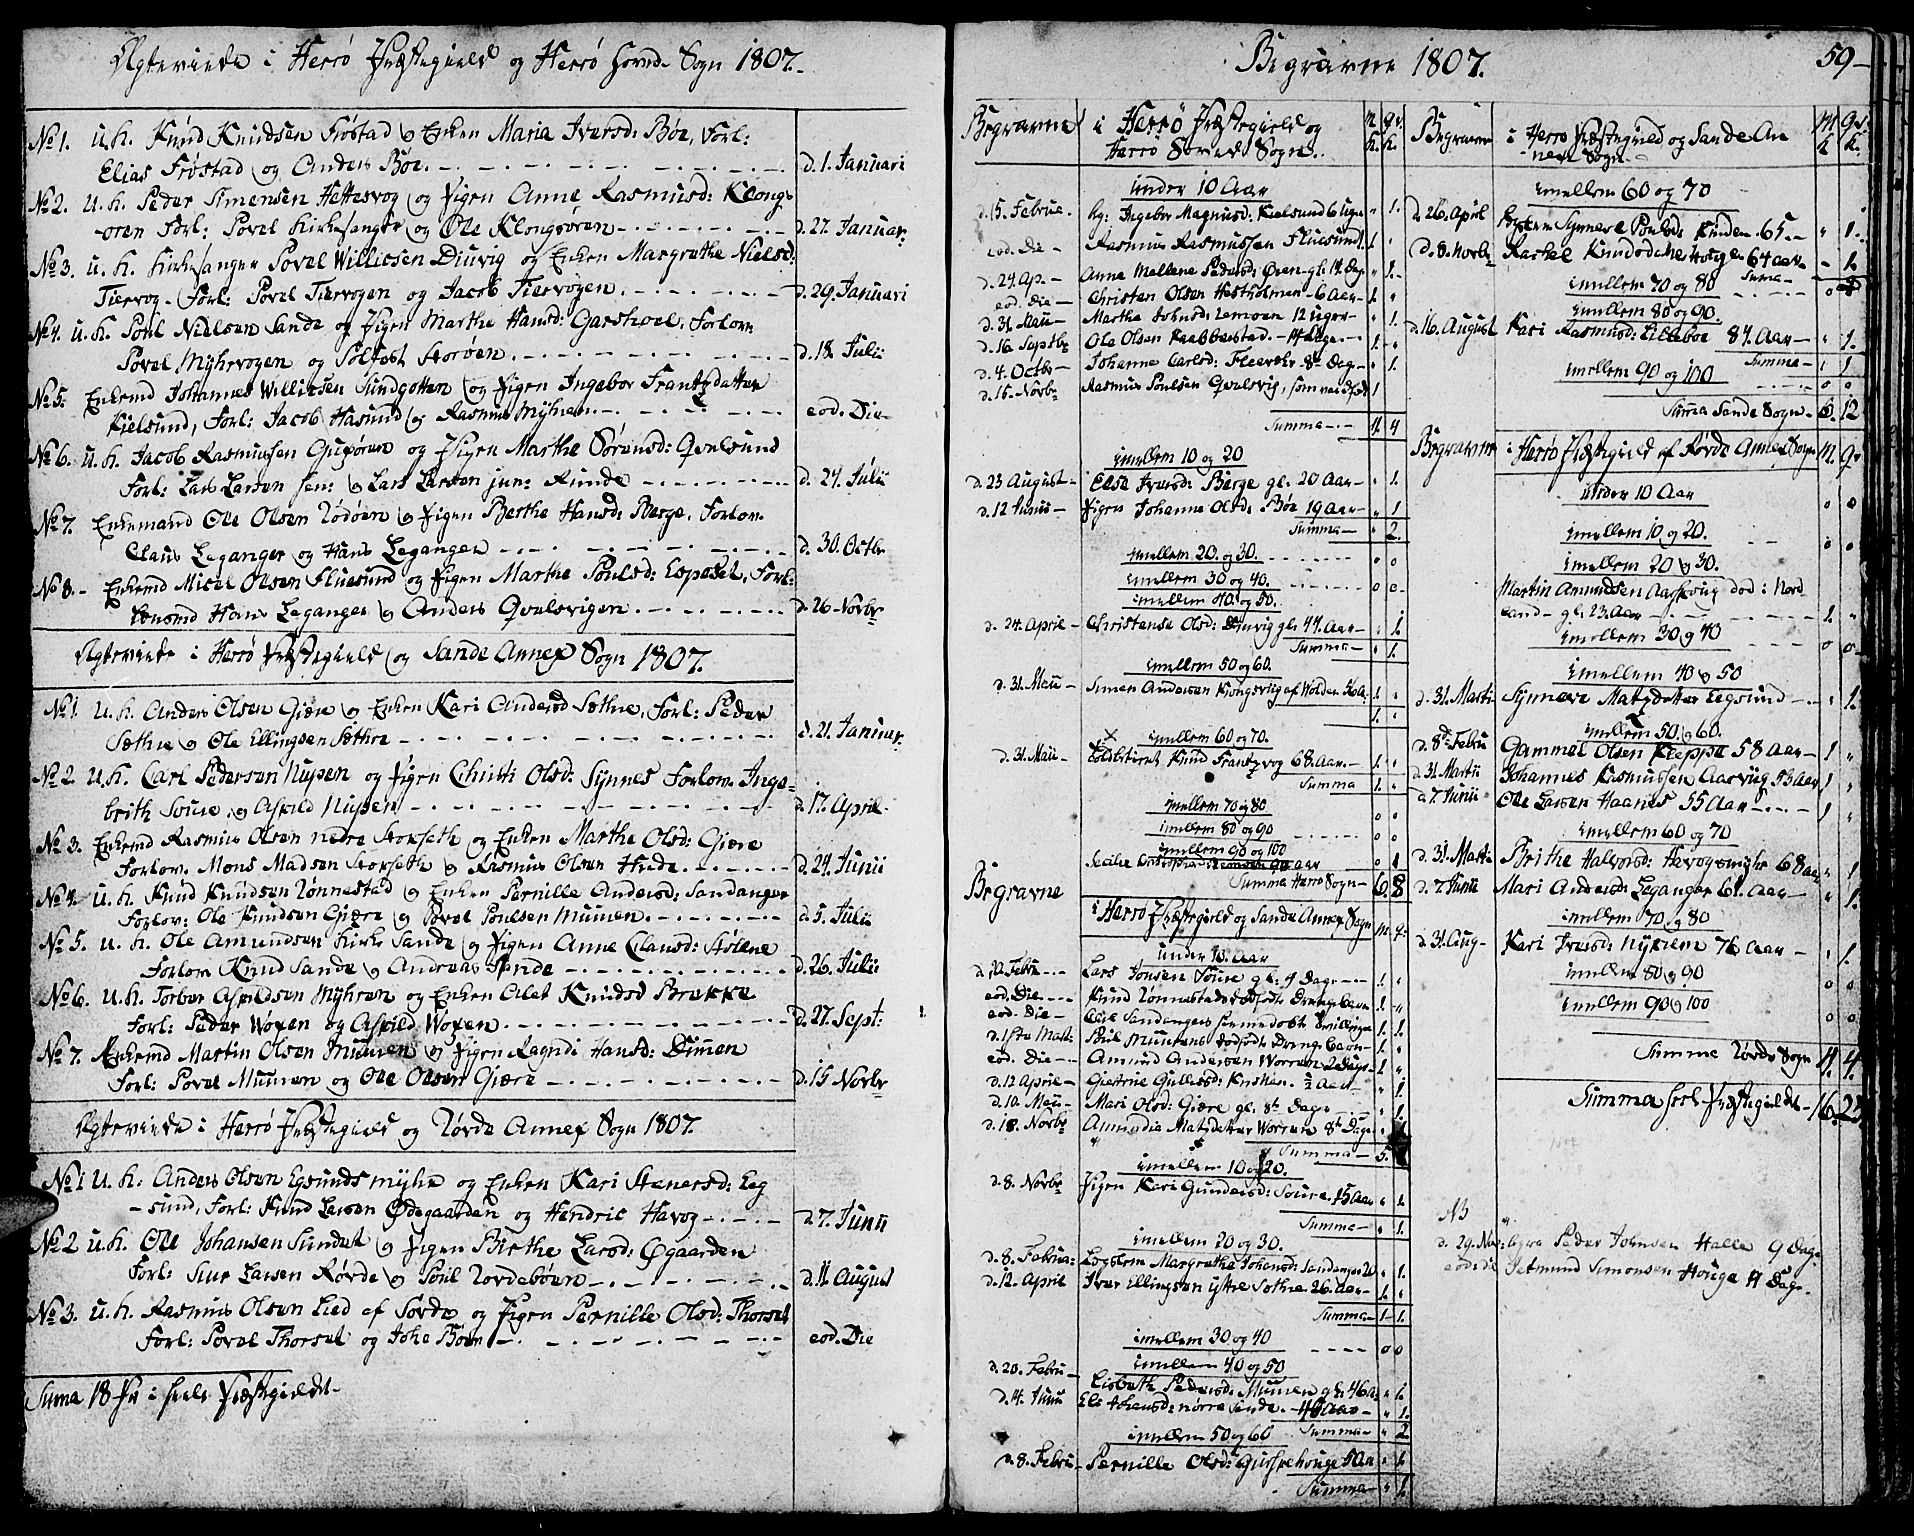 Ægteviede i Herrø Præstegield og Herrø Hoved-Sogn 1807.
No 1. u. k. Knud Knudsen Frøstad og Enken Maria Iversd: Bøe, Forl:
Elias Frøstad og Anders Bøe. d. 1. Januari
No 2. u. k. Peder Simensen Hettesvog og Pigen Anne Rasmusd: Klongs-
øren Forl: Povel Kirkesanger og Ole Klongsøren d. 27. Januar:
No 3. u. k. Kirkesanger Povel Williksen Diuvig og Enken Margrethe Nielsd:
Tiervog. Forl: Povel Tiervogen og Jacob Tiervogen. d. 29. Januari
No 4. u. k. Poul Nielsen Sande og Pigen Marthe Hansd: Garshoel. Forlov
Povel Myhrvogen og Solfast Storøen. d. 18. Julii
No 5. Enkemd Johannes Williksen Sundgotten og Pigen Ingebor Frantzdatter
Kielsund, Forl: Jacob Hasund og Rasmus Myhren. eod. Die
No 6. u. k. Jacob Rasmussen Gursøren og Pigen Marthe Sørensd: Qvalsund
Forl: Lars Larsen sen: og Lars Larsen jun: Runde d. 24. Julii
No 7. Enkemand Ole Olsen Rødøen og Pigen Berthe Hansd: Berge, Forlov.
Claus Leganger og Hans Leganger d. 30. Octbr
No 8. Enkemd Micel Olsen Fluesund og Pigen Marthe Poulsd: Espeset, Forl:
Hans Leganger og Anders Qvalsvigen. d. 26 Novbr
Ægteviede i Herrø Præstegield og Sande Annex Sogn 1807.
No 1 u. k. Anders Olsen Giære og Enken Kari Andersd Sæthre, Forl: Peder
Sæthre og Ole Ellingsen Sæthre d. 21. Januar.
No 2. u. k. Carl Pedersen Nupen og Pigen Christi Olsd: Synnes Forlov. Inge-
brith Soure og Aspild Nupen d. 17. April
No 3. Enkemd Rasmus Olsen nedre Storseth og Enken Marthe Olsd: Giære
Forlov. Mons Madsen Storseth og Rasmus Olsen Hide d. 24. Junii
No 4. u. k. Knud Knudsen Rønnestad og Enken Pernille Andersd: Sandanger
Forlov: Ole Knudsen Giære og Povel Poulsen Muuren d. 5. Julii
No 5. u. k. Ole Amundsen Kirke Sande og Pigen Anne Clausd: Stølene
Forlov Knud Sande og Andreas Sande d. 26. Julii
No 6. u. k. Torber Aspildsen Myhren og Enken Olet Knudsd Brekke
Forl: Peder Woxen og Aspild Woxen. d. 27. Sept:
No 7. Enkemd Martin Olsen Muuren og Pigen Ragndi Hansd: Dimen
Forl: Povel Muuren og Ole Olsen Giære d. 15 Novbr
Ægteviede i Herrø Præstegield og Røvde Annex Sogn 1807.
No 1 u. k. Anders Olsen Egsundsmyhr og Enken Kari Stenersd: Eeg
-sund, Forl: Knud Larsen Ødegaarden og Hendric Havog d. 7. Junii
No 2 u. k. Ole Johansen Sundet og Pigen Birthe Larsd: Øgaarden
Forl: Siur Larsen Røvde og Poul Rovdebøen d. 11 August
No 3. u. k. Rasmus Olsen Lied af Sørde og Pigen Pernille Olsd: Thorset
Forl: Povel Thorset og John Bøen eod. Die
Suma 18 Pr i hele Præstegieldet
Begravne 1807.
59
Begravne i Herrø Præstegield og M. Qv.
Herrø Hoved Sogn. K. K.
under 10 Aar
d. 15. Februe. Ingebor Magnusd: Kielsund 6 Uger " 1.
eod. Die Rasmus Rasmussen Fluesund. 1. "
d. 24. Ap. Anne Mallene Pedersd: Øren gl. 14. Dag " 1.
eod. Die Christen Olsen Hestholmen 6 Aar 1. "
d. 31. Maii Marthe Johnsd: Lemoen 12 Uger " 1.
d. 16. Septbr Ole Olsen Rabberstad. 14 Dage. 1. "
d. 4. Octbr Johanne Carlsd: Fleervhr 8te Dag " 1.
d. 15. Novbr Rasmus Poulsen Qvalsvig, 1
Summa 4. 4
imellem 10 og 20
d. 23 August Else Iversd: Berge gl. 20 Aar " 1.
d. 12 Junii Pigen Johanne Olsd: Bøe 19 Aar " 1
Summa " 2.
imellem 20. og 30. 0 0
imellem 30 og 40. 0 0
imellem 40. og 50.
d. 24. April Christense Olsd: Diuvig gl: 44. Aar " 1.
Summa " 1.
imellem 50 og 60.
d. 31. Maii Simen Andersen Kongsviig af Wolden 56 A. 1. "
1. "
imellem 60 og 70.
d. 31. Maii Knud Frantzvog 68. Aar 1. "
Summa 1. "
imellem 70 og 80 0 0
imellem 80 og 90 0 0
imellem 90 og 100
90 aar 0 1
Summa Herrø Sogn 6. 8
Begravne i Herrø Præstegield og Sande Annex Sogn M. Q.
under 10. Aar
d. 20. Febru Lars Jonsen Soure gl: 9 Dage 1. "
eod. Die Knud Rønnestads dødfødte Drengebarn 1. "
eod. Die Sandangers Tvillinger 1. 1.
d. 1ste Mart: Poul Muurens dødfødte Drengebarn 1. "
eod. Die Amund Andersen Worren 2 Dage 1. "
d. 12 April Giertrue Gullachsd: Krohen. ½ Aar " 1.
d. 10. Maii Mari Olsd: Giære gl. 8te Dage " 1.
d. 18. Novbr Anundie Matzdatter Worren 8te Dage " 1.
Summa 5.
imellem 10 og 20.
d. 8. Novbr Pigen Kari Gundersd: Soure. 15 Aar " 1.
Summa " 1.
imellem 20 og 30.
d. 8. Februa: Margrethe Johansd: Sandanger " 1.
d. 12. April Iver Ellingsen ytre Sæthre 26. aar 1. "
Summa 1. 1.
imellem 30 og 40 0 0
imellem 40 og 50
d. 20. Febru Lisbeth Pedersd: Muuren gl: 46 A: " 1.
d. 14. Junii Eli Johansd: nørre Sande. 48 Aar " 1.
Summa " 2
imellem 50 og 60
d. 8. Febru Pernille Olsd: Gurskehouge 50 Aar " 1.
Summa " 1.
Begravne i Herrø Præstegield og Sande An M. Qv.
nex Sogn K K.
imellem 60 og 70
d. 26. April Synnere Poulsd: Kinden 65. " 1.
d. 8. Novbr Rachel Knudsd: Houge 64 aar " 1.
Summa
imellem 70 og 80 0
imellem 80 og 90.
d. 16. August Kari Rasmusd: Lillebøe 87. Aar " 1.
Summa " 1
imellem 90 og 100 0 0
Summa Sande Sogn 6. 12
Begravne i Herrø Præstegield af Røvde Annex Sogn M. Qv
Under 10 Aar 0 0
imellem 10 og 20. 0 0
imellem 20 og 30.
Martin Amundsen Aarsviig død i Nord
land gl. 23. Aar 1. "
imellem 30 og 40 0 0
imellem 40 og 50
d. 31. Marti Synnere Matzdatter Eegsund " 1.
imellem 50. og 60.
d. 8de Febru Gammel Olsen Kleppe 58 aar 1 "
d. 31. Martii Johannes Rasmussen Aarviig, 53 Aar 1 "
d. 7. Junii Ole Larsen Haanes 55 Aar 1 "
imellem 60 og 70
d. 31. Marti Brithe Halvorsd: Havogsmyhr 68 aar " 1
d. 7. Junii Mari Andersd: Leganger 61. Aar " 1.
imellem 70 og 80
d. 31. Aug Kari Iversd: Nykrem 76 Aar " 1.
imellem 80 og 90 0 0
imellem 90 og 100 0 0
Summa Røvde Sogn 4. 4.
Summa heele Præstegieldet 16. 25
NB
d. 29. Nov: Peder Johnsen Halle 9 Dage
eod. die Setmund Simonsen Houge 11 Dage.